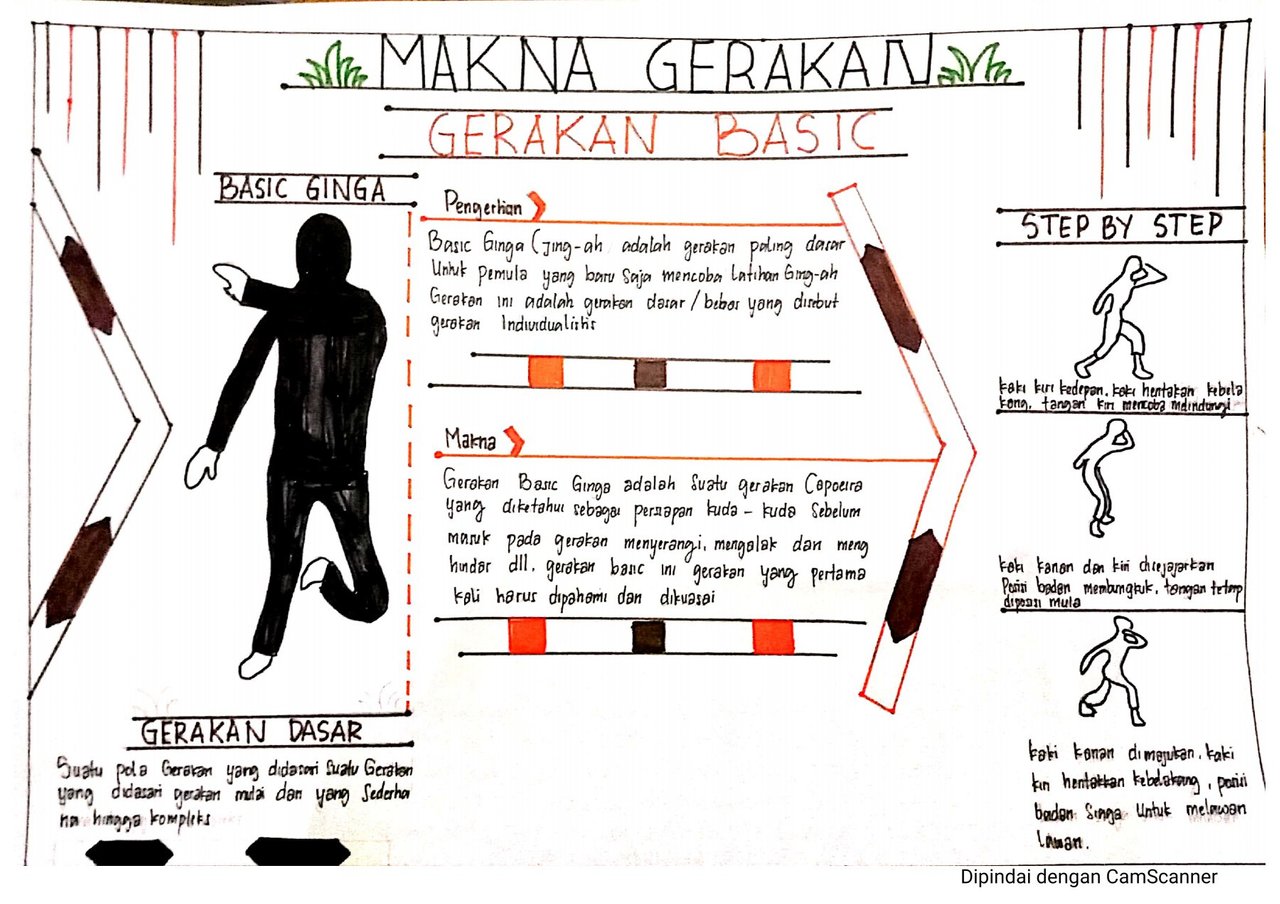 MAKNA GERAKAN
GERAKAN BASIC
BASIC GINGA
Pengertian
Basic Ginga (Jing-ah adalah gerakan paling dasar
Untuk pemula yang baru saja mencoba Latihan Ging-ah
Gerakan ini adalah gerakan dasar / bebas yang disebut
gerakan Individualistis
Makna
Gerakan Basic Ginga adalah Suatu gerakan Capoeira
yang diketahui sebagai persiapan kuda - kuda Sebelum
masuk pada gerakan menyerangi, mengelak dan meng
hindar dll. gerakan basic ini gerakan yang pertama
kali harus dipahami dan dikuasai
GERAKAN DASAR
Suatu pola Gerakan yang didasari Suatu Gerakan
yang didasari gerakan mulai dari yang Sederha
na hingga kompleks
STEP BY STEP
kaki kiri kedepan, kaki hentakan kebela
kang, tangan kiri mencoba melindungi
kaki kanan dan kiri disejajarkan
Posisi badan membungkuk, tangan tetap
diposisi mula
kaki kanan dimajukan, kaki
kiri hentakkan kebelakang, posisi
badan Singa Untuk melawan
Lawan.
Dipindai dengan CamScanner